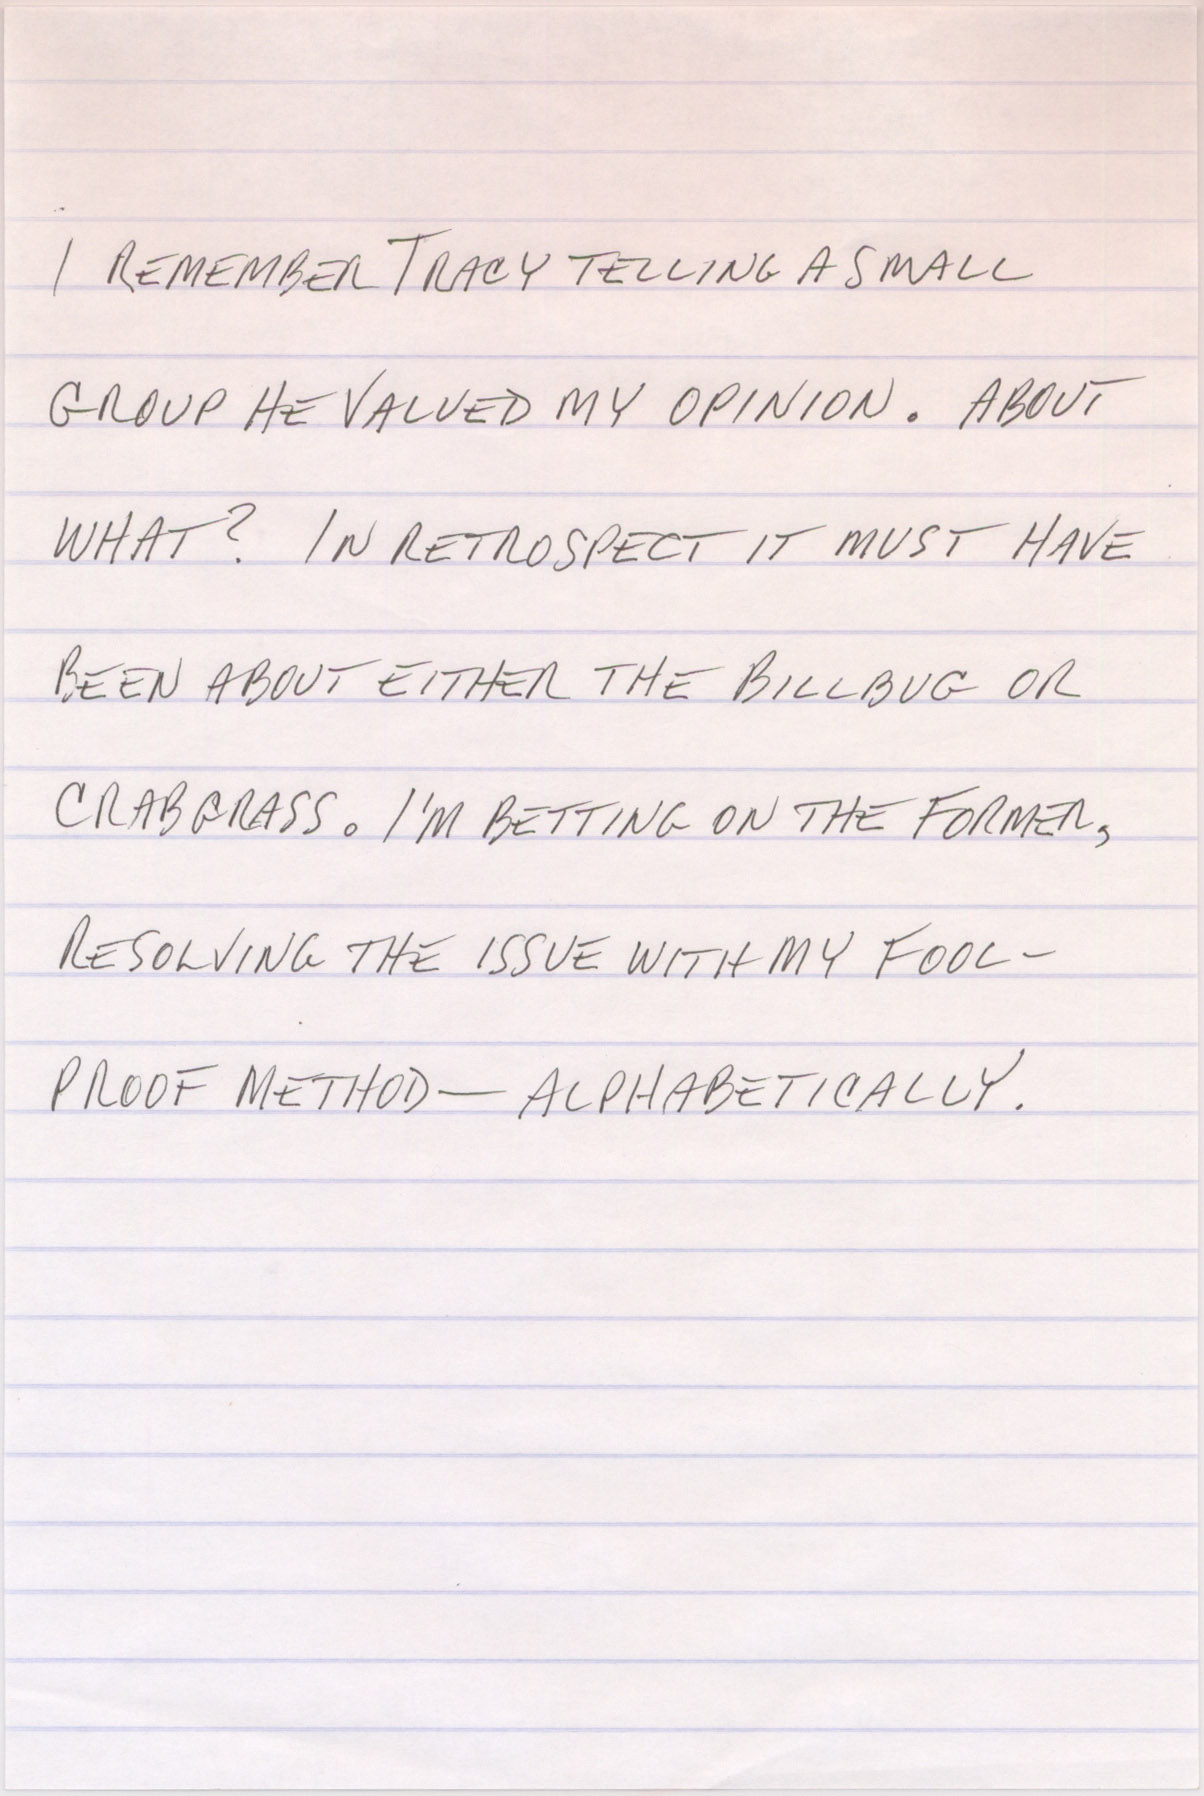 I REMEMBER TRACY TELLING A SMALL
GROUP HE VALUED MY OPINION. ABOUT
WHAT? IN RETROSPECT IT MUST HAVE
BEEN ABOUT EITHER THE BILLBUG OR
CRABGRASS. I'M BETTING ON THE FORMER,
RESOLVING THE ISSUE WITH MY FOOL-
PROOF METHOD — ALPHABETICALLY.